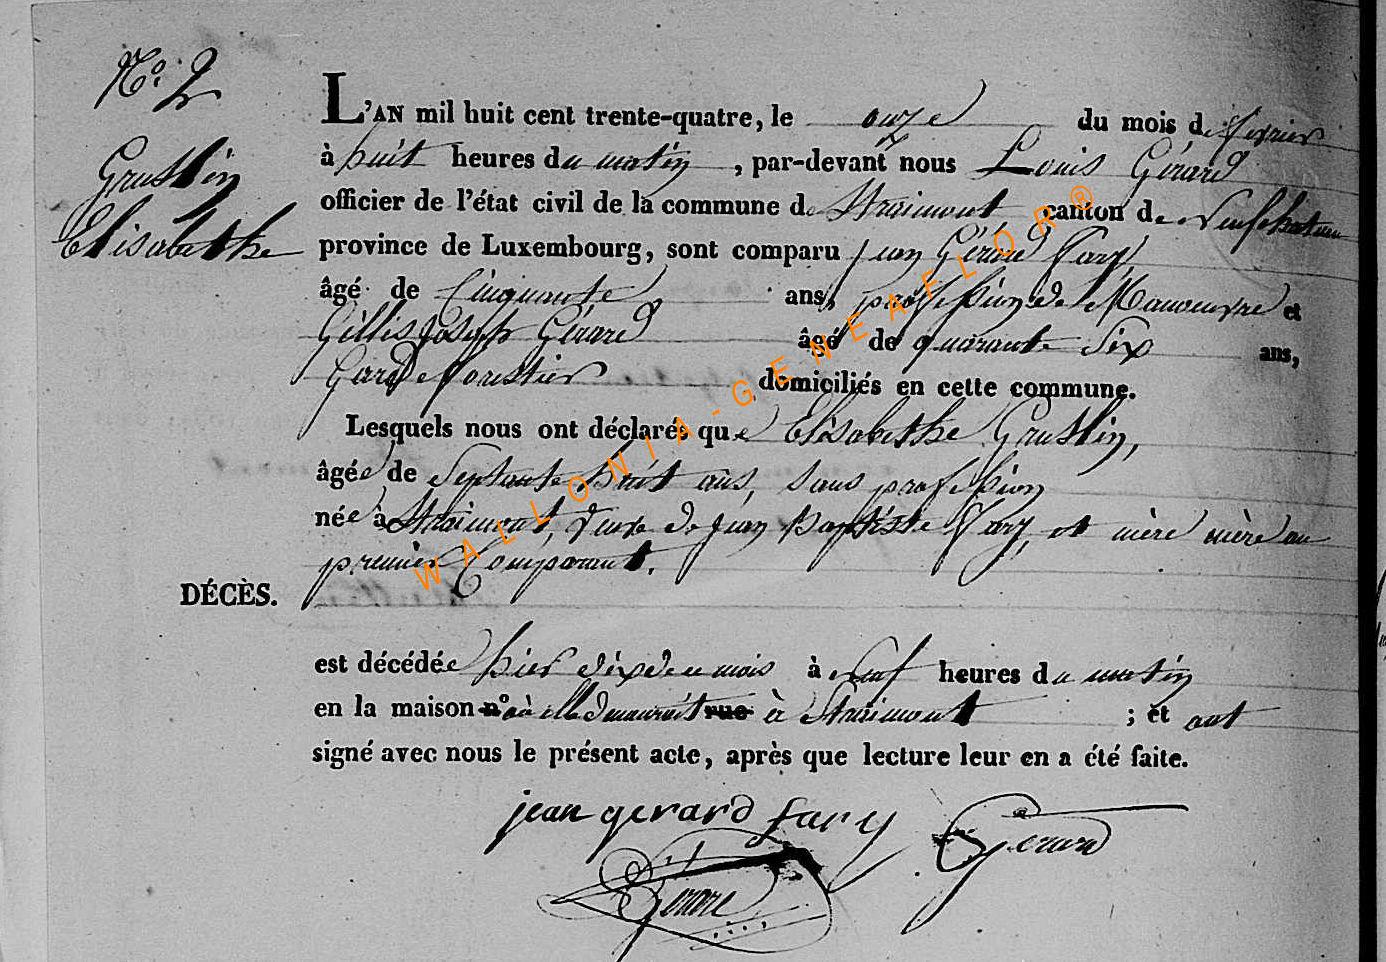 No. 2
Grustin
Elisabethe
L'AN mil huit cent trente-quatre, le onze du mois de fevrier
à huit heures du matin, par-devant nous Louis Gérard
officier de l'état civil de la commune de Straimont canton de Neufchateau
province de Luxembourg, sont comparu Jean Gérard Fary
âgé de Cinquante ans, profession de Manoeuvre et
Gillis Joseph Gérard âgé de quarante Six ans,
Garde forestier domiciliés en cette commune.
Lesquels nous ont déclarés que Elisabethe Grustin,
âgée de Septante huit ans, Sans profession
née à Straimont, veuve de Jean Baptiste Fary, et mère mère au
premier Comparant.
DÉCÈS.
est décédée hier dix de ce mois à neuf heures du matin
en la maison n° où elle demeurait rue à Straimont ; et ont
signé avec nous le présent acte, après que lecture leur en a été faite.
jean gerard fary Gerard
Gérard
WALLONIA-GENEAFLOR®